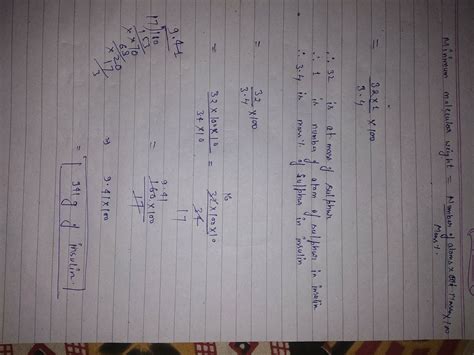 Minimum molecular weight = Number of atoms × Mass × 100
Mass %
= 32 × 1 × 100
3.4
∴ 32 is at. mass of sulphur
∴ 1 is number of atom of sulphur in insulin
∴ 3.4 is mass % of sulphur in insulin
= 32 × 100
3.4
= 32 × 100 × 10 = 32 × 100 × 10
34 × 10 34
16
17
= 9.41
160 × 100
17
⇒ 9.41 × 100
= 941 g of insulin.
9.41
17 160
153
× × 70
68
× 20
17
3